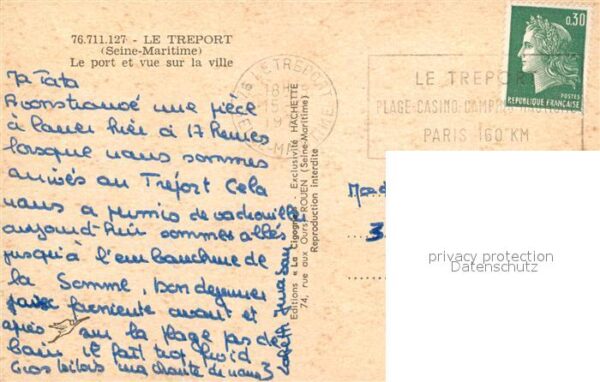 76.711.127 - LE TREPORT
(Seine-Maritime)
Le port et vue sur la ville
Ma Tata
une pièce
à laver hier à 17 heures
lorsque nous sommes
arrivés au Tréport Cela
nous a permis de
aujourd'hui sommes allés
jusqu'à l'embouchure de
la Somme, bon dejeuner
farniente avant et
après sur la plage pas de
bain il fait trop froid
Gros bibis ma chante de nous 3
Editions "La Cigogne" - Exclusivité HACHETTE
74, rue aux Ours - ROUEN (Seine-Maritime)
Reproduction interdite
LE TREPORT
18H
15
LE TREPORT
PLAGE-CASINO-CAMPING
PARIS 160 KM
0,30
POSTES
REPUBLIQUE FRANÇAISE
3
privacy protection
Datenschutz